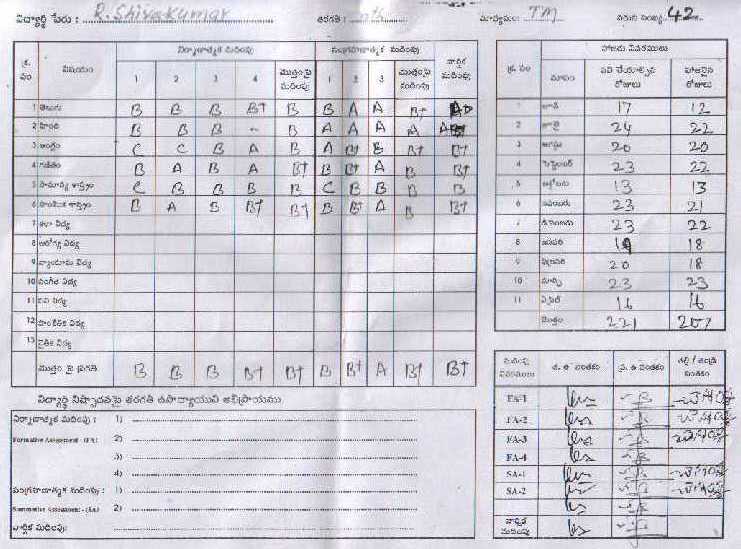 విద్యార్థి పేరు : R. Shivakumar తరగతి : మాధ్యమం: TM 42
నిర్మాణాత్మక మదింపు సంగ్రహణాత్మక మదింపు వార్షిక మదింపు
క్ర. సం విషయం 1 2 3 4 మొత్తంపై మదింపు 1 2 3 మొత్తంపై మదింపు
1 తెలుగు B B B B+ B B A A B+
2 హిందీ B B B B A A A A
3 ఆంగ్లం C C B A B A B+ B B+ B+
4 గణితం B A B A B+ B B+ A B B+
5 సామాన్య శాస్త్రం C B B B B C B B B B
6 సాంఘిక శాస్త్రం B A B B+ B+ B B+ A B B+
7 కళా విద్య
8 ఆరోగ్య విద్య
9 వ్యాయామ విద్య
10 సంగీత విద్య
11 విద్య
12 విద్య
13 నైతిక విద్య
మొత్తం పై ప్రగతి B B B B+ B+ B B+ A B+ B+
హాజరు వివరములు
క్ర. సం మాసం పని చేయాల్సిన రోజులు హాజరైన రోజులు
1 జూన్ 17 12
2 జూలై 24 22
3 ఆగస్టు 20 20
4 సెప్టెంబర్ 23 22
5 అక్టోబరు 13 13
6 నవంబరు 23 21
7 డిసెంబరు 23 22
8 జనవరి 19 18
9 ఫిబ్రవరి 20 18
10 మార్చి 23 23
11 ఏప్రిల్ 16 16
మొత్తం 221 207
మదింపు వివరములు త. ఉ సంతకం ప్ర. ఉ సంతకం తల్లి / తండ్రి సంతకం
FA-1
FA-2
FA-3
FA-4
SA-1
SA-2
వార్షిక మదింపు
విద్యార్థి నిష్పాదనపై తరగతి ఉపాధ్యాయుని అభిప్రాయము
నిర్మాణాత్మక మదింపు : 1)
Formative Assessment - (FA) 2)
3)
4)
సంగ్రహణాత్మక మదింపు : 1)
Summative Assessment - (SA) 2)
వార్షిక మదింపు